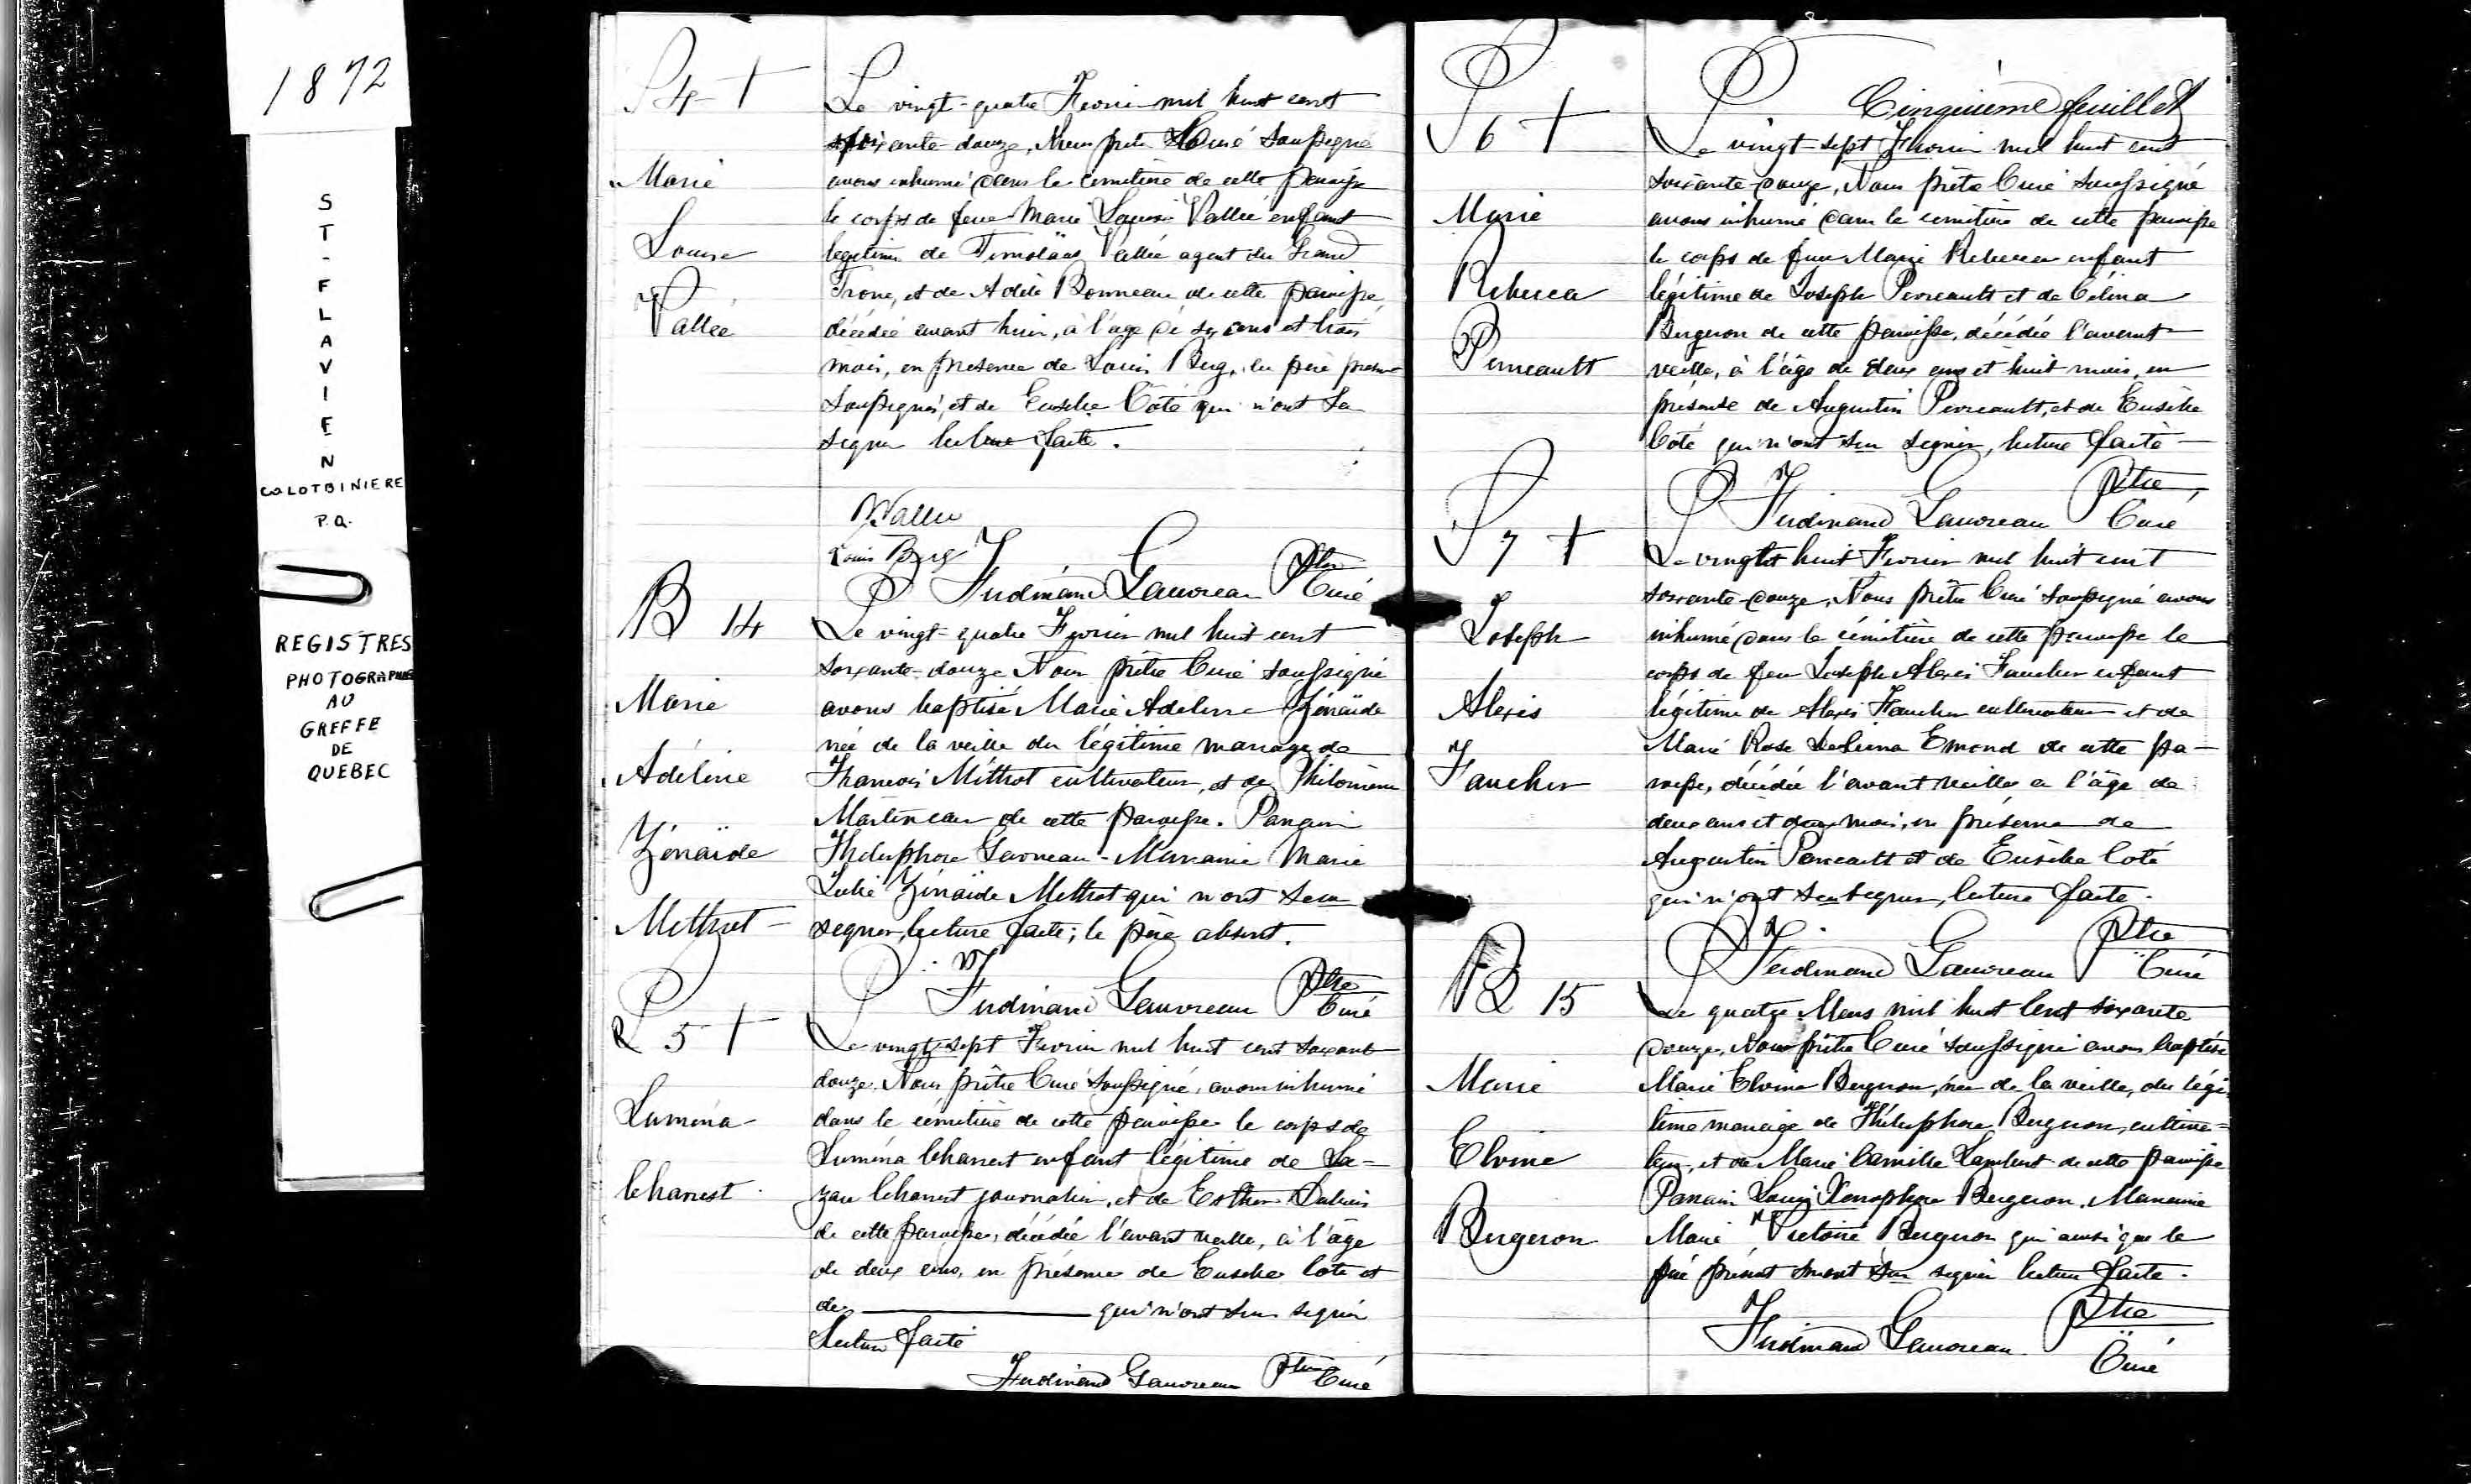 1872
ST-FLAVIEN
CO LOTBINIERE
P.Q.
REGISTRES
PHOTOGRAPHIES
AU
GREFFE
DE
QUEBEC
S 4 +
Marie
Louise
Vallée
Le vingt-quatre Fevrier mil huit cent
soixante-douze, Nous prêtre Curé soussigné
avons inhumé dans le cimetière de cette paroisse
le corps de feue Marie Louise Vallée enfant
légitime de Timolaüs Vallée agent du Grand
Tronc, et de Adèle Bonneau de cette paroisse,
décédée avant hier, à l'age de ans et trois
mois, en presence de Louis Berg, du père present
soussignés, et de Eusèbe Coté qui n'ont su
signer lecture faite.
Vallée
Louis Berg
Ferdinand Gauvreau Ptre
Curé
B 14
Marie
Adéline
Zénaïde
Methot
Le vingt-quatre Fevrier mil huit cent
soixante-douze Nous prêtre Curé soussigné
avons baptisé Marie Adeline Zénaïde
née de la veille du légitime mariage de
Francois Méthot cultivateur, et de Philomène
Martineau de cette paroisse. Parrain
Thelesphore Garneau - Marraine Marie
Julie Zénaïde Methot qui n'ont seu
signer, lecture faite; le père absent.
Ferdinand Gauvreau Ptre
Curé
S 5 +
Lumina
Charest
Le vingt-sept Fevrier mil huit cent soixante
douze. Nous prêtre Curé soussigné, avons inhumé
dans le cémitière de cette paroisse le corps de
Lumina Charest enfant légitime de La-
zare Charest journalier, et de Esther
de cette paroisse, décédée l'avant veille, à l'âge
de deux ans, en présence de Eusèbe Coté et
de ———— qui n'ont seu signer
Lecture faite
Ferdinand Gauvreau Ptre Curé
Cinquième feuillet
S 6 +
Marie
Rebecca
Perreault
Le vingt-sept Fevrier mil huit cent
soixante-douze, Nous prêtre Curé soussigné
avons inhumé dans le cemitière de cette paroisse
le corps de feue Marie Rebecca enfant
légitime de Joseph Perreault et de Célina
Bergeron de cette paroisse, décédée l'avant
veille, à l'âge de deux ans et huit mois, en
présence de Augustin Perreault, et de Eusèbe
Coté qui n'ont seu signer, lecture faite
Ferdinand Gauvreau Ptre
Curé
S 7 +
Joseph
Alexis
Faucher
Le vingt huit Fevrier mil huit cent
soixante-douze, Nous prêtre Curé soussigné avons
inhumé dans le cémitière de cette paroisse le
corps de feu Joseph Alexis Faucher enfant
légitime de Alexis Faucher cultivateur et de
Marie Rose Delima Emond de cette pa-
roisse, décédée l'avant veille a l'âge de
deux ans et mois, en présence de
Augustin Perreault et de Eusèbe Coté
qui n'ont seu signer, lecture faite.
Ferdinand Gauvreau Ptre
Curé
B 15
Marie
Elvine
Bergeron
Le quatre Mars mil huit Cent soixante
douze, Nous prêtre Curé soussigné avons baptisé
Marie Elvine Bergeron, née de la veille, du légi-
time mariage de Thélesphore Bergeron, cultiva-
teur, et de Marie Camille Lambert de cette paroisse
Parrain Louis Xenophon Bergeron. Marraine
Marie Victoire Bergeron qui ainsi que le
père présent n'ont seu signer lecture faite.
Ferdinand Gauvreau Ptre
Curé